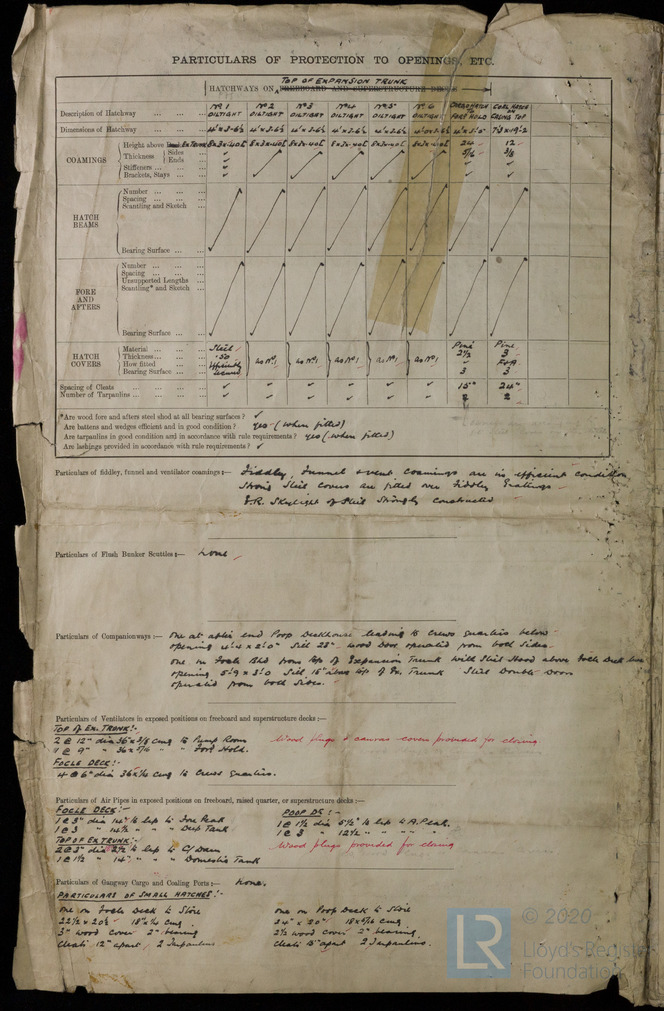 PARTICULARS OF PROTECTION TO OPENINGS, ETC.
TOP OF EXPANSION TRUNK
HATCHWAYS ON FREEBOARD AND SUPERSTRUCTURE DECKS
Description of Hatchway Nº 1 OILTIGHT Nº 2 OILTIGHT Nº 3 OILTIGHT Nº 4 OILTIGHT Nº 5 OILTIGHT Nº 6 OILTIGHT CARGO HATCH TO FORE HOLD COAL HATCH ON CASING TOP
Dimensions of Hatchway
COAMINGS
Height above
Thickness Sides 5/16 3/8
Ends
Stiffeners
Brackets, Stays
HATCH BEAMS
Number
Spacing
Scantling and Sketch
Bearing Surface
FORE AND AFTERS
Number
Spacing
Unsupported Lengths
Scantling* and Sketch
Bearing Surface
HATCH COVERS
Material Steel Pine Pine
Thickness .50 as Nº1 as Nº1 as Nº1 as Nº1 as Nº1 2½ 3
How fitted Efficiently secured F&A
Bearing Surface 3 3
Spacing of Cleats 15" 24"
Number of Tarpaulins 2 2
*Are wood fore and afters steel shod at all bearing surfaces? ✓
Are battens and wedges efficient and in good condition? yes (when fitted)
Are tarpaulins in good condition and in accordance with rule requirements? yes (when fitted)
Are lashings provided in accordance with rule requirements? ✓
Particulars of fiddley, funnel and ventilator coamings:— Fiddley, Funnel & vent Coamings are in efficient condition
Strong Steel Covers are fitted over Fiddley Gratings
E.R. Skylight of Steel Strongly Constructed
Particulars of Flush Bunker Scuttles:— None
Particulars of Companionways:— One at after end Poop Deckhouse leading to Crews quarters below
opening 4'.4 x 2'.0" Sill 23" wood Door operated from both sides
One in Focle Bhd from top of Expansion Trunk with Steel Hood above Focle Deck
opening 5'.9 x 3'.0 Sill 15" above top of Ex. Trunk Steel Double Doors
operated from both sides.
Particulars of Ventilators in exposed positions on freeboard and superstructure decks:—
TOP of EX. TRUNK:-
2 @ 12" dia 36 x 3/8 cmg to Pump Room
1 @ 9" " 36 x 5/16 " " Ford Hold.
Wood plugs & canvas covers provided for closing.
FOCLE DECK:-
4 @ 6" dia 36 x 5/16 cmg to Crews Quarters.
Particulars of Air Pipes in exposed positions on freeboard, raised quarter, or superstructure decks:—
FOCLE DECK:-
1 @ 3" dia 14" to lip to Fore Peak
1 @ 3 " 14½ " " Deep Tank
TOP OF EX TRUNK:-
2 @ 3" dia 2½ to lip to C/Dam
1 @ 1½ " 14" " " Domestic Tank
POOP DK:-
1 @ 1½ dia 5½" to lip to A. Peak.
1 @ 3 " 12½ " " " "
Wood plugs provided for closing
Particulars of Gangway Cargo and Coaling Ports:— None.
PARTICULARS OF SMALL HATCHES:-
One on Focle Deck to Store
22½ x 20½ 18" x 5/16 cmg
3" wood cover 2" bearing
Cleats 12" apart, 2 Tarpaulins
One on Poop Deck to Store
24" x 20" 18 x 5/16 cmg
2½ wood cover 2" bearing.
Cleats 15" apart 2 Tarpaulins.
LR
© 2020
Lloyd's Register
Foundation